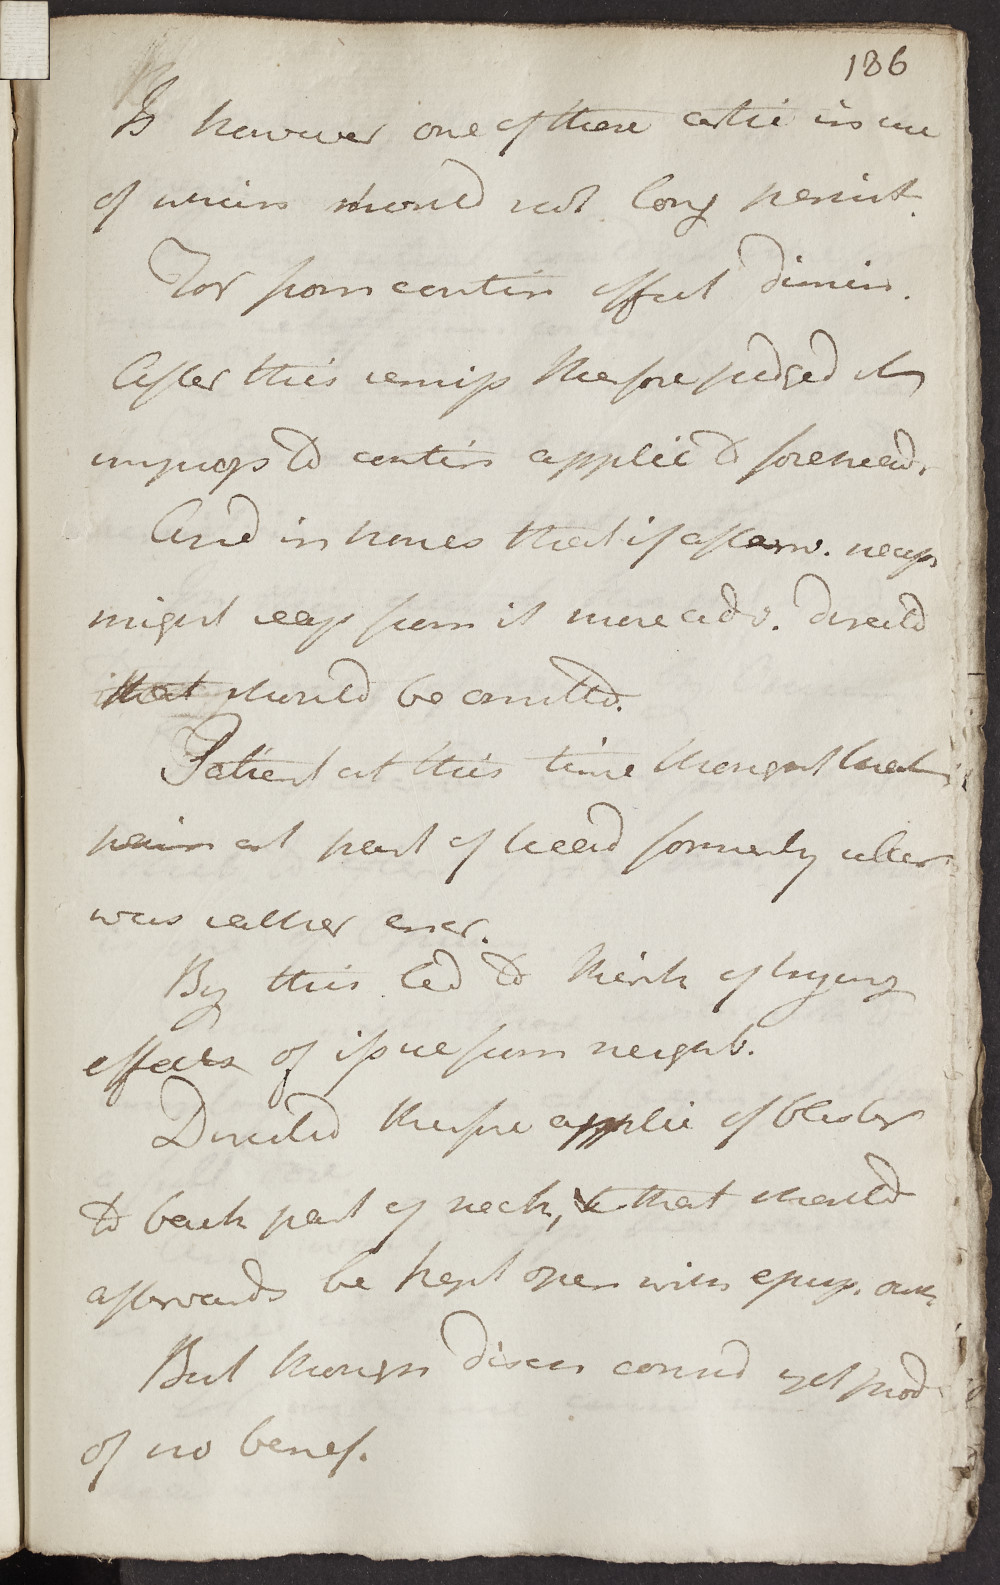 186
Is however one of these artic in use
of which should not long persist.
For from contin effect dimin.
After this remiss therefore judged it
to contin applic to forehead.
And in hopes that if afterw. neces
might reap from it more adv. directd
that should be omittd.
Patient at this time thought that
pain at part of head formerly ulcer
was rather easier.
By this led to think of trying
effects of issue from neighb.
Directed therefore applic of blister
to back part of neck, & that should
afterwards be kept open with episp. oint.
But though disch contind yet prod
of no benef.